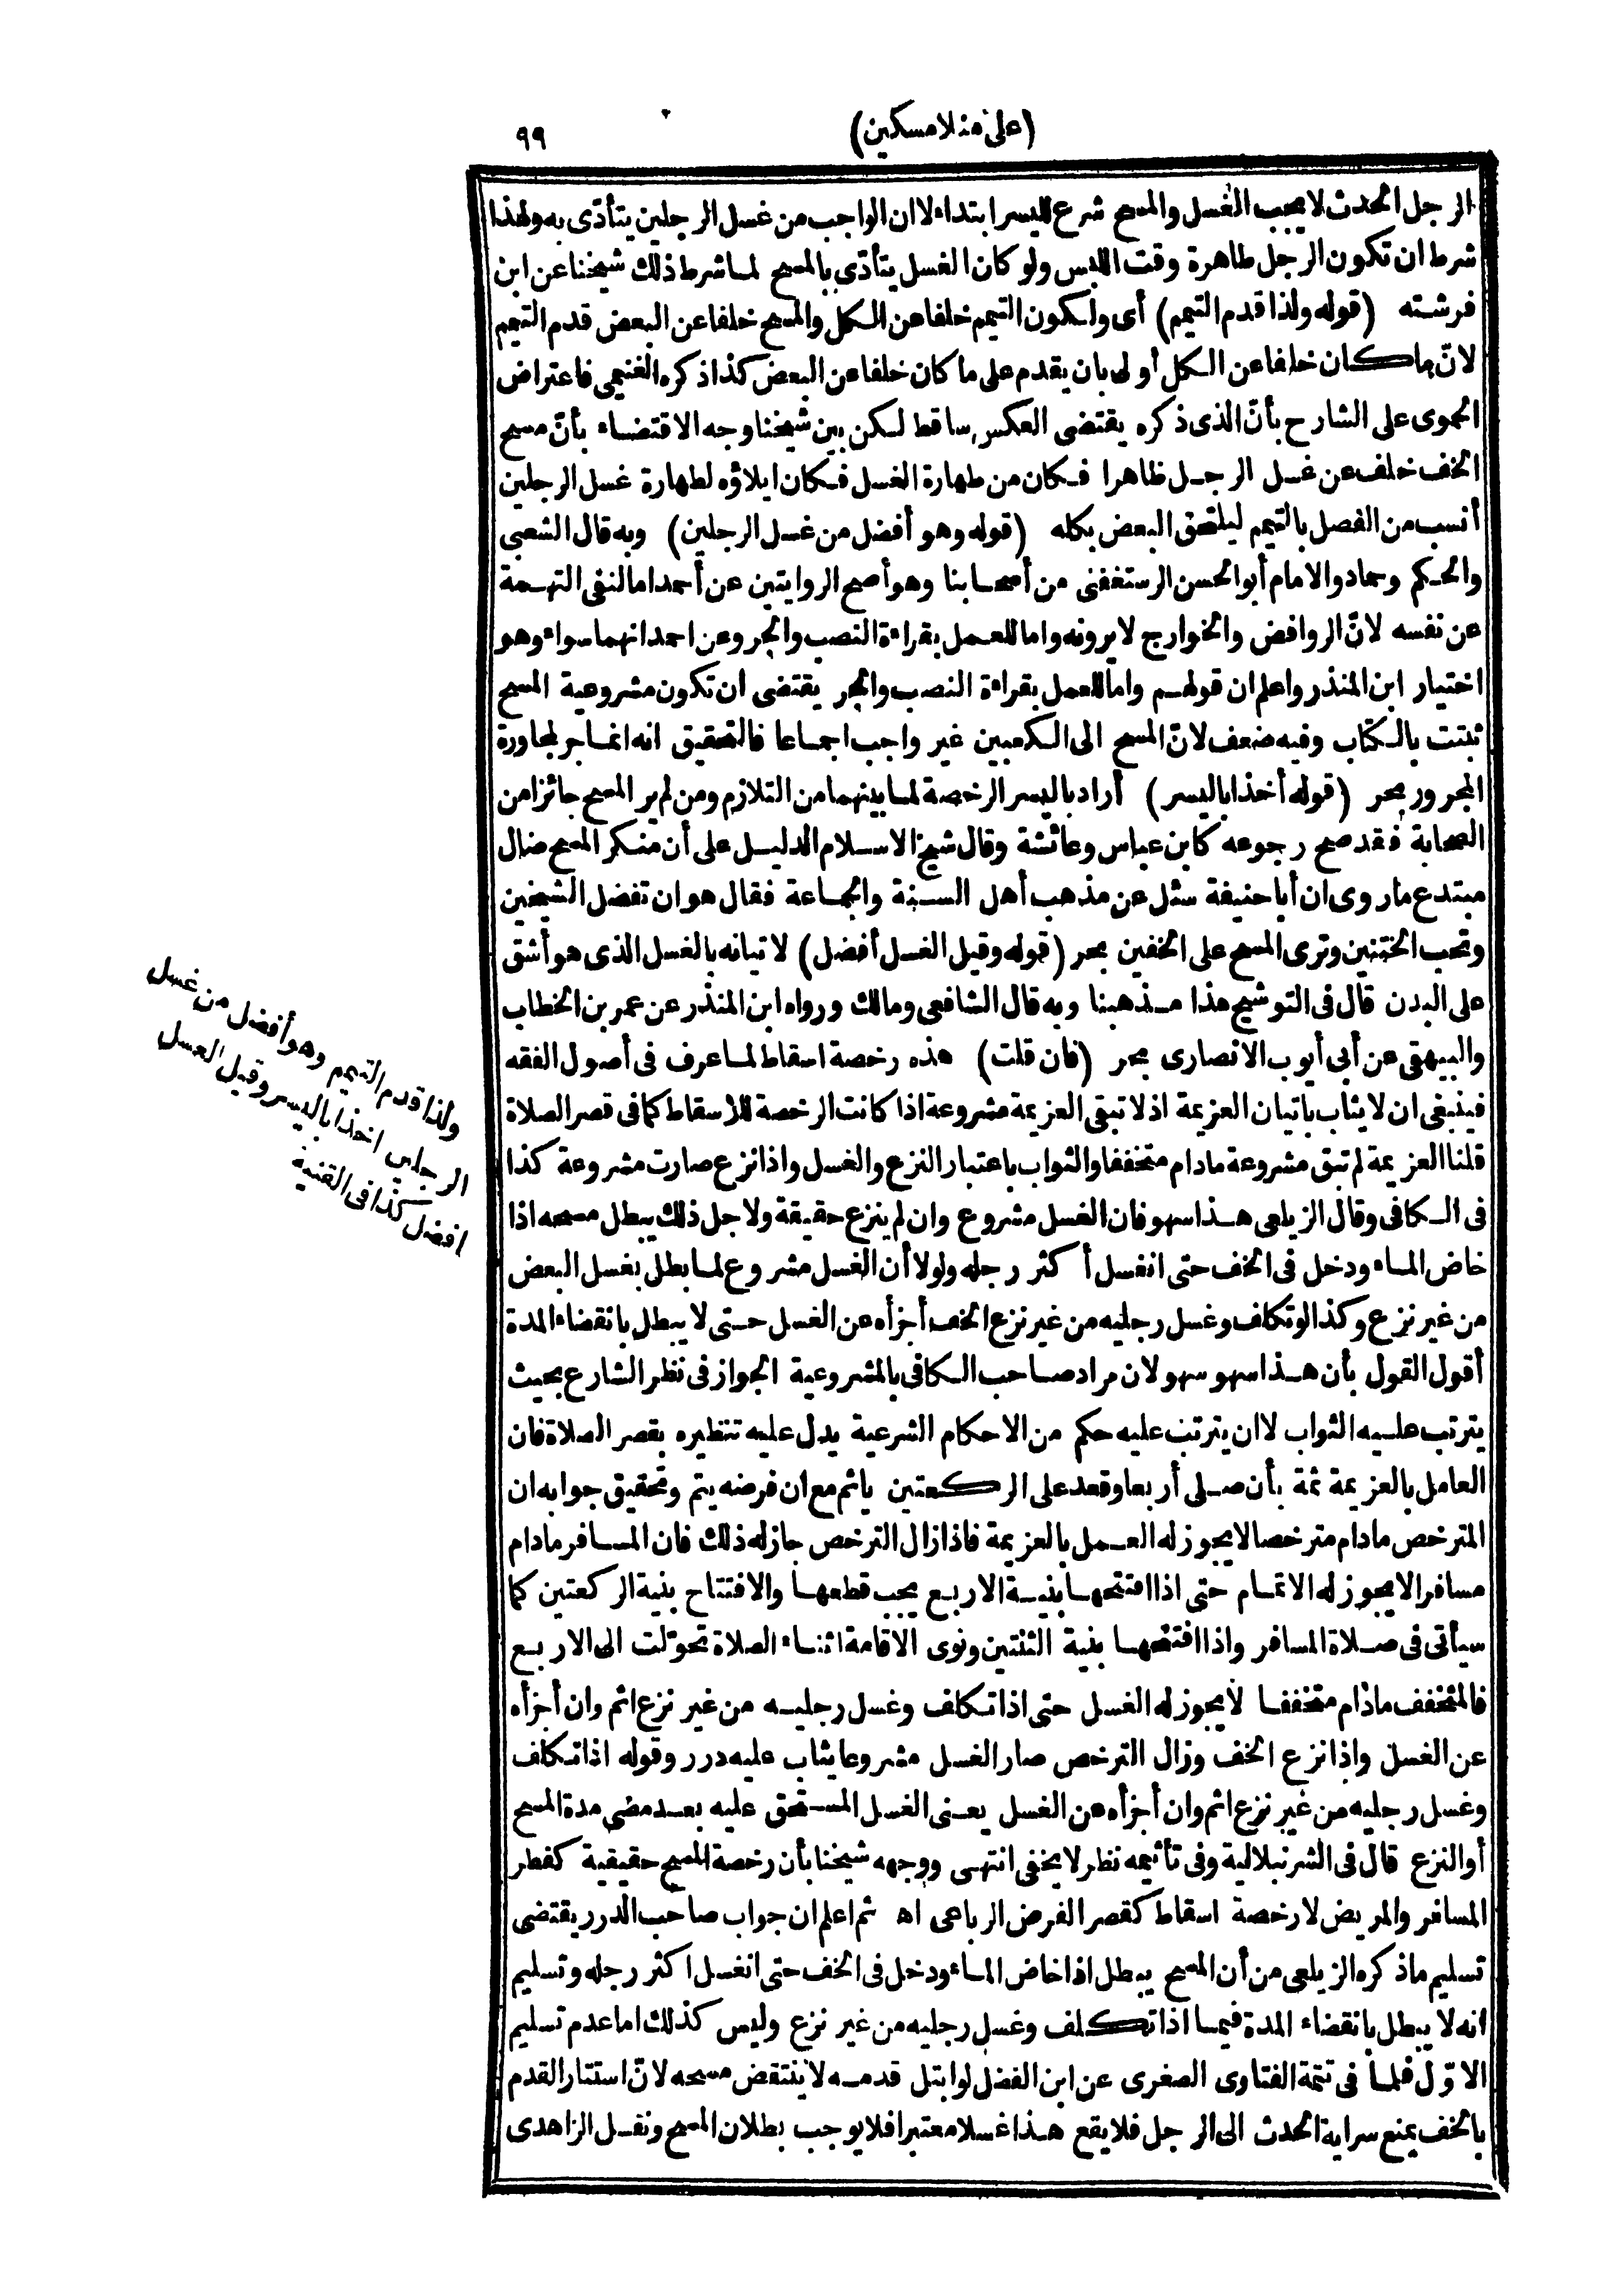 (على منلا مسكين) ٩٩
الرجل الحدث لا يجب الغسل والمسح شرع لليسر ابتداء لا ان الواجب من غسل الرجلين يتأدّى به ولهذا
شرط ان تكون الرجل طاهرة وقت اللبس ولو كان الغسل يتأدّى بالمسح لما شرط ذلك شيخنا عن ابن
فرشته (قوله ولذا قدم التيمم) أى ولكون التيمم خلفا عن الكل والمسح خلفا عن البعض قدم التيمم
لانّ ما كان خلفا عن الكل أولى بان يقدم على ما كان خلفا عن البعض كذا ذكره الغنيمى فاعتراض
الحموى على الشارح بأنّ الذى ذكره يقتضى العكس ساقط لكن بين شيخنا وجه الاقتضاء بأنّ مسح
الخف خلف عن غسل الرجل ظاهرا فكان من طهارة الغسل فكان ايلاؤه لطهارة غسل الرجلين
أنسب من الفصل بالتيمم ليلتحق البعض بكله (قوله وهو أفضل من غسل الرجلين) وبه قال الشعبى
والحكم وحماد والامام أبو الحسن الرستغفنى من أصحابنا وهو أصح الروايتين عن أحمد اما لنفى التهمة
عن نفسه لانّ الروافض والخوارج لا يرونه واما للعمل بقراءة النصب والجر وعن احمد انهما سواء وهو
اختيار ابن المنذر واعلم ان قولهم واما للعمل بقراءة النصب والجر يقتضى ان تكون مشروعية المسح
ثبتت بالكتاب وفيه ضعف لانّ المسح الى الكعبين غير واجب اجماعا فالتحقيق انه انما جر لمجاورة
المجرور بحر (قوله أخذا باليسر) أراد باليسر الرخصة لما بينهما من التلازم ومن لم ير المسح جائزا من
الصحابة فقد صح رجوعه كابن عباس وعائشة وقال شيخ الاسلام الدليل على أن منكر المسح ضال
مبتدع ما روى ان أبا حنيفة سئل عن مذهب أهل السنة والجماعة فقال هو ان تفضل الشيخين
وتحب الختنين وترى المسح على الخفين بحر (قوله وقيل الغسل أفضل) لاتيانه بالغسل الذى هو أشق
على البدن قال فى التوشيح هذا مذهبنا وبه قال الشافعى ومالك ورواه ابن المنذر عن عمر بن الخطاب
والبيهقى عن أبى أيوب الانصارى بحر (فان قلت) هذه رخصة اسقاط لما عرف فى أصول الفقه
فينبغى ان لا يثاب باتيان العزيمة اذ لا تبقى العزيمة مشروعة اذا كانت الرخصة للاسقاط كما فى قصر الصلاة
قلنا العزيمة لم تبق مشروعة مادام متخففا والثواب باعتبار النزع والغسل واذا نزع صارت مشروعة كذا
فى الكافى وقال الزيلعى هذا سهو فان الغسل مشروع وان لم ينزع حقيقة ولاجل ذلك يبطل مسحه اذا
خاض الماء ودخل فى الخف حتى انغسل أكثر رجله ولولا أن الغسل مشروع لما بطل بغسل البعض
من غير نزع وكذا لو تكلف وغسل رجليه من غير نزع الخف أجزأه عن الغسل حتى لا يبطل بانقضاء المدة
أقول القول بأن هذا سهو سهو لان مراد صاحب الكافى بالمشروعية الجواز فى نظر الشارع بحيث
يترتب عليه الثواب لا ان يترتب عليه حكم من الاحكام الشرعية يدل عليه تنظيره بقصر الصلاة فان
العامل بالعزيمة ثمة بأن صلى أربعا وقعد على الركعتين يأثم مع ان فرضه يتم وتحقيق جوابه ان
المترخص مادام مترخصا لا يجوز له العمل بالعزيمة فاذا زال الترخص جاز له ذلك فان المسافر مادام
مسافرا لا يجوز له الاتمام حتى اذا افتتحها بنية الاربع يجب قطعها والافتتاح بنية الركعتين كما
سيأتى فى صلاة المسافر واذا افتتحها بنية الثنتين ونوى الاقامة اثناء الصلاة تحوّلت الى الاربع
فالمتخفف مادام متخففا لا يجوز له الغسل حتى اذا تكلف وغسل رجليه من غير نزع اثم وان أجزأه
عن الغسل واذا نزع الخف وزال الترخص صار الغسل مشروعا يثاب عليه درر وقوله اذا تكلف
وغسل رجليه من غير نزع اثم وان أجزأه عن الغسل يعنى الغسل المستحق عليه بعد مضى مدة المسح
أو النزع قال فى الشرنبلالية وفى تأثيمه نظر لا يخفى انتهى ووجهه شيخنا بأن رخصة المسح حقيقية كفطر
المسافر والمريض لا رخصة اسقاط كقصر الفرض الرباعى اه ثم اعلم ان جواب صاحب الدرر يقتضى
تسليم ما ذكره الزيلعى من أن المسح يبطل اذا خاض الماء ودخل فى الخف حتى انغسل اكثر رجله وتسليم
انه لا يبطل بانقضاء المدة فيما اذا تكلف وغسل رجليه من غير نزع وليس كذلك اما عدم تسليم
الاوّل فلما فى تتمة الفتاوى الصغرى عن ابن الفضل لو ابتل قدمه لا ينتقض مسحه لانّ استتار القدم
بالخف يمنع سراية الحدث الى الرجل فلا يقع هذا غسلا معتبرا فلا يوجب بطلان المسح ونقل الزاهدى
ولذا قدم التيمم وهو أفضل من غسل
الرجلين اخذا باليسر وقيل الغسل
افضل كذا فى القنية